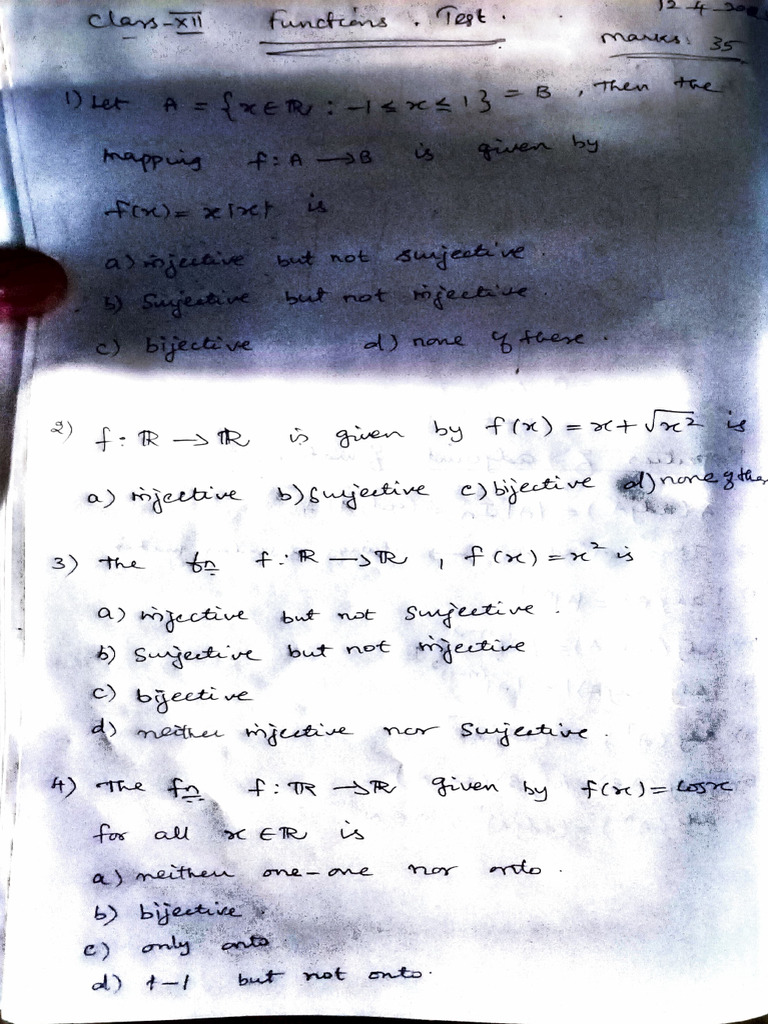 Class-XII Functions. Test. 12-4-
Marks: 35
1) Let A = {x ∈ ℝ : -1 ≤ x ≤ 1} = B, Then the
mapping f: A → B is given by
f(x) = x|x| is
a) injective but not surjective.
b) Surjective but not injective.
c) bijective d) none of these.
2) f: ℝ → ℝ is given by f(x) = x + √x² is
a) injective b) Surjective c) bijective d) none of the
3) The fn f: ℝ → ℝ, f(x) = x² is
a) injective but not Surjective.
b) Surjective but not injective
c) bijective
d) neither injective nor Surjective.
4) The fn f: ℝ → ℝ given by f(x) = cosx
for all x ∈ ℝ is
a) neither one-one nor onto.
b) bijective
c) only onto
d) 1-1 but not onto.